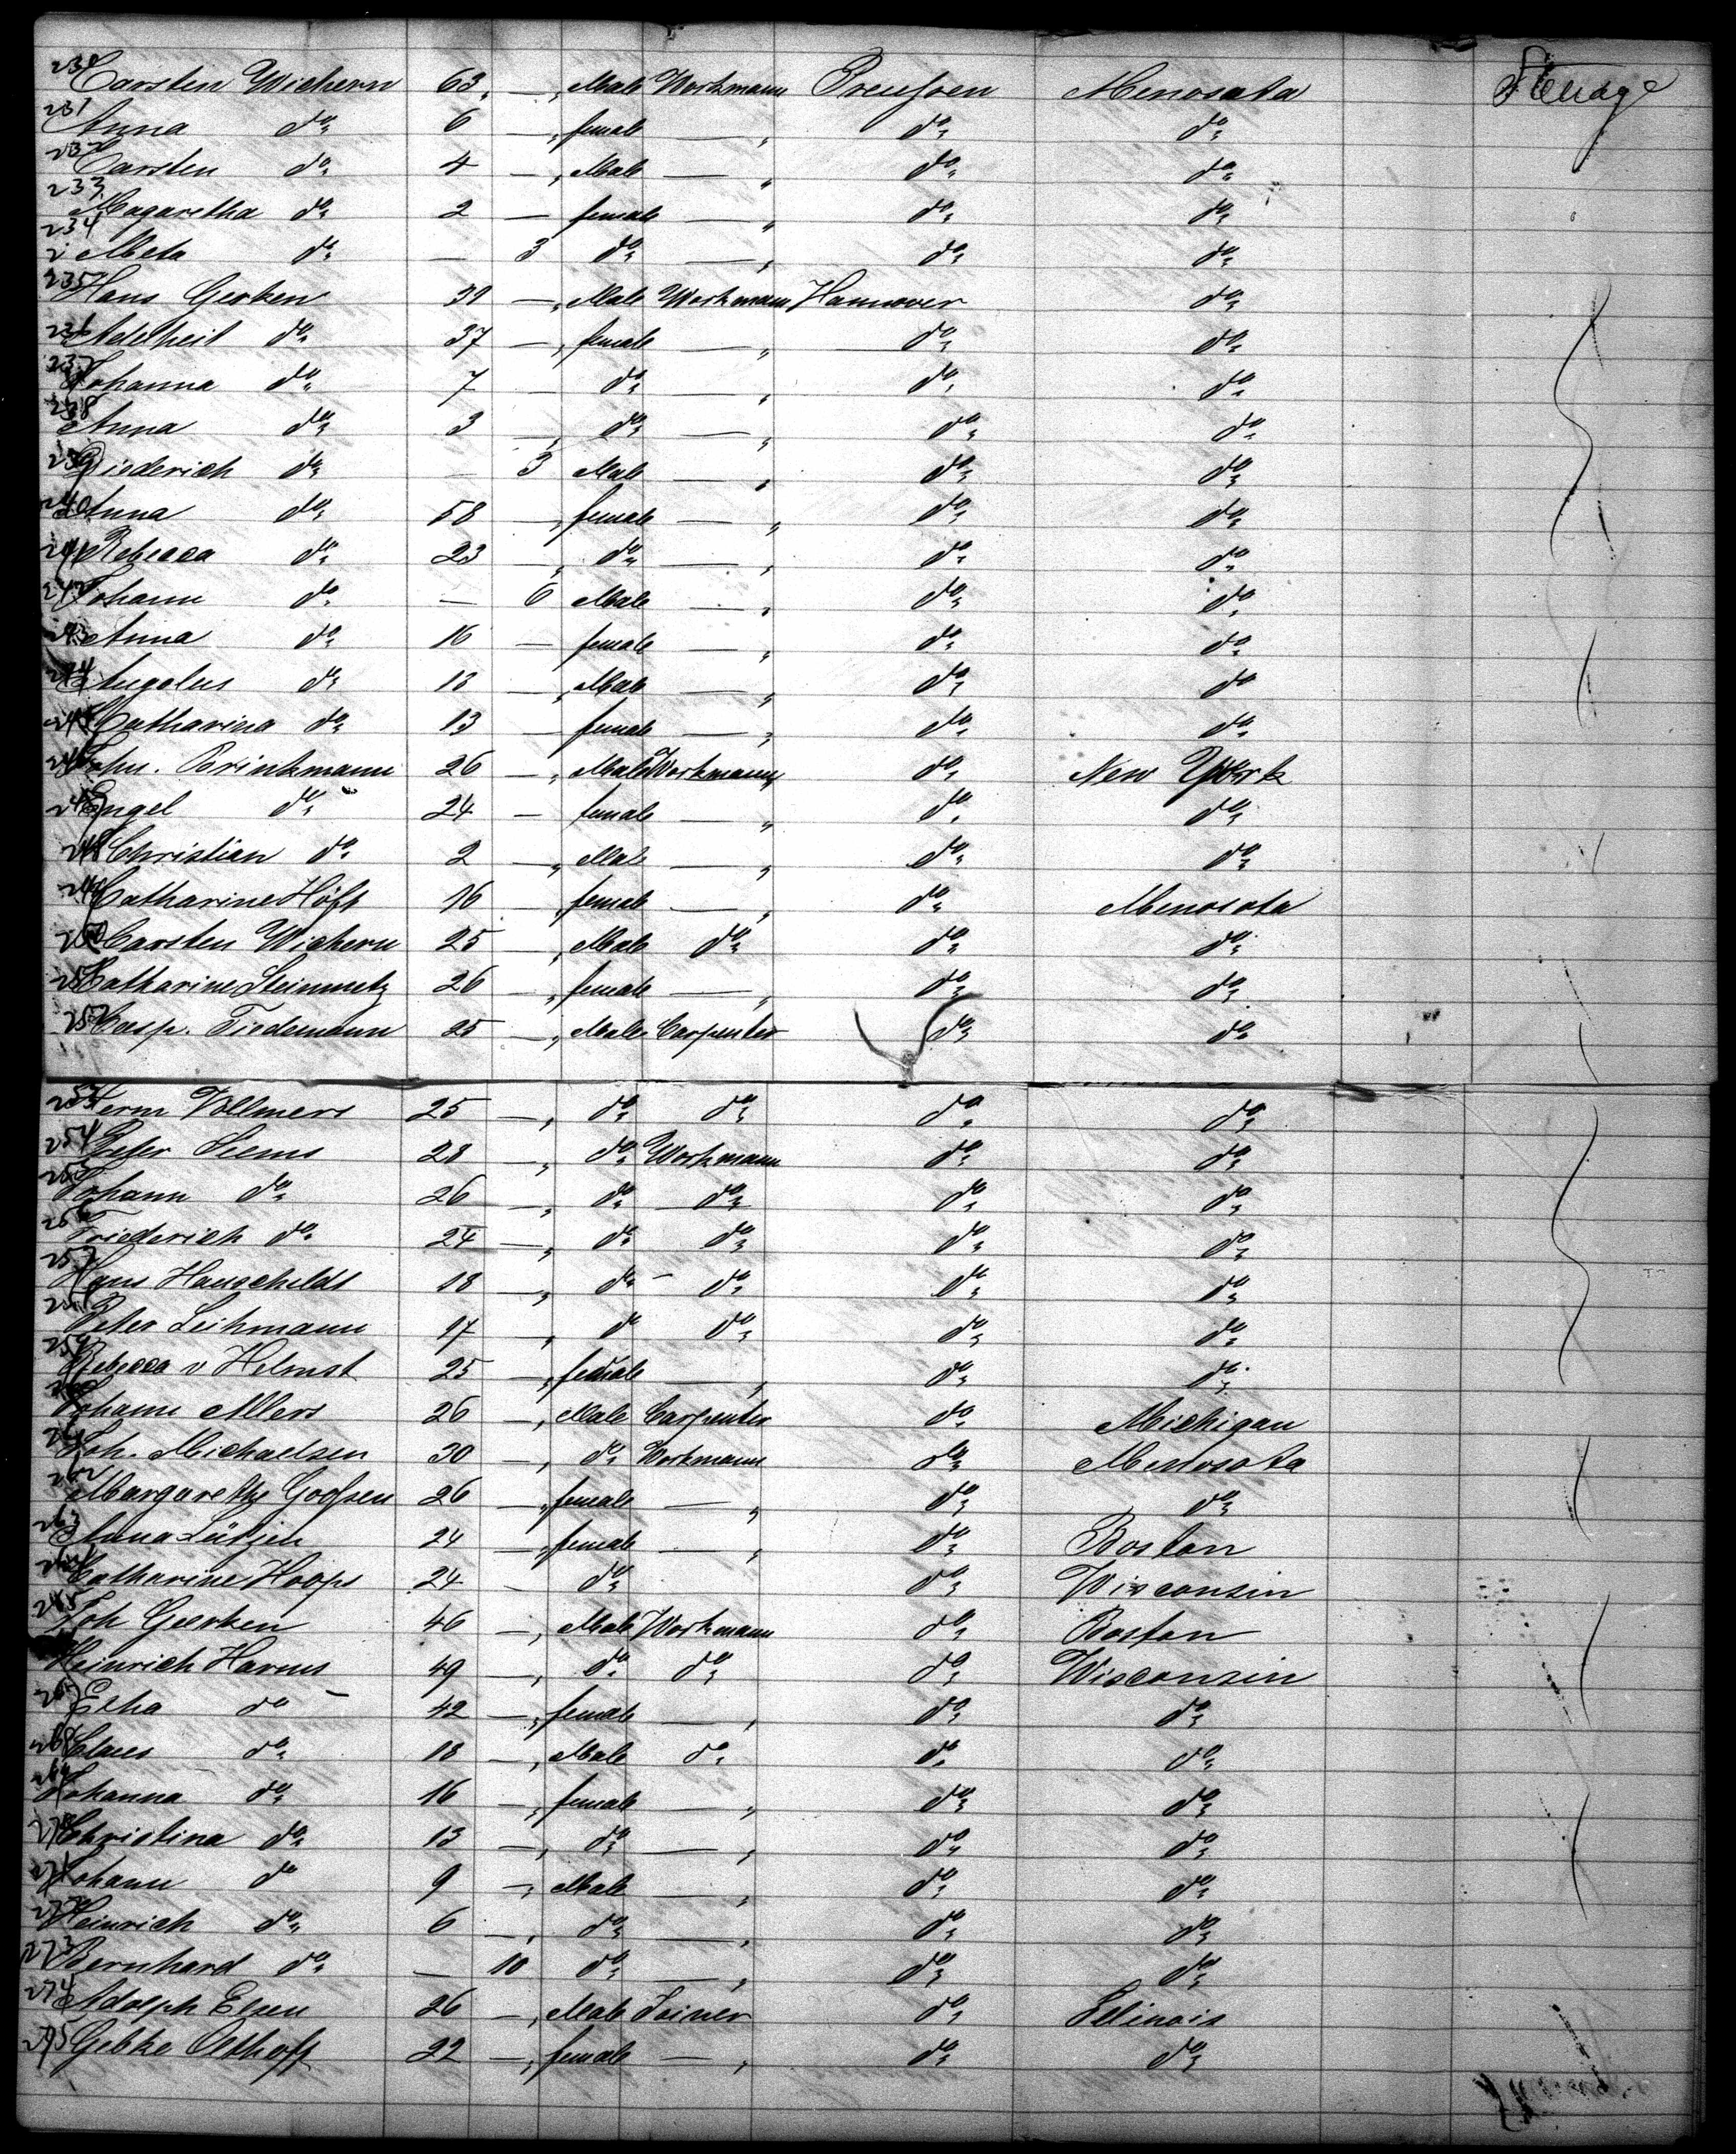 230 Carsten Wichern 63 — Male Workmann Preussen Menosata Steerage
231 Anna do 6 — female — do do
232 Carsten do 4 — Male — do do
233 Magaretha do 2 — female — do do
234 Meta do — 3 do — do do
235 Hans Gerken 39 — Male Workmann Hannover do
236 Adelheit do 37 — female — do do
237 Johanna do 7 — do do do
238 Anna do 3 — do — do do
239 Diederich do — 3 Male — do do
240 Anna do 58 — female — do do
241 Rebecca do 23 — do — do do
242 Johann do — 6 Male — do do
243 Anna do 16 — female — do do
244 Augolus do 13 — Male — do do
245 Catharina do 13 — female — do do
246 John. Brinkmann 26 — Male Workmann do New York
247 Engel do 24 — female — do do
248 Christian do 2 — Male — do do
249 Catharine Höft 16 — female — do Menosota
250 Carsten Wichern 25 — Male do do do
251 Catharine Steinmetz 26 — female — do do
252 Casp. Tiedemann 25 — Male Carpenter do do
253 Herm Vollmers 25 — do do do do
254 Peter Siems 28 — do Workmann do do
255 Johann do 26 — do do do do
256 Friederich do 24 — do do do do
257 Hans Hauschildt 18 — do do do do
258 Peter Leihmann 17 — do do do do
259 Rebecca v Helmst 25 — female — do do
260 Johann Allers 26 — Male Carpenter do Michigan
261 Joh. Michaelsen 30 — do Workmann do Menosota
262 Margarethe Goossen 26 — female — do do
263 Anna Lütjen 24 — female — do Boston
264 Catharine Hoops 24 — do do Wisconsin
265 Joh Gerken 46 — Male Workmann do Boston
Heinrich Harms 49 — do do do Wisconsin
267 Etha do 42 — female — do do
268 Claus do 18 — Male do do do
269 Johanna do 16 — female — do do
270 Christina do 13 — do — do do
271 Johann do 9 — Male — do do
272 Heinrich do 6 — do — do do
273 Bernhard do — 10 do — do do
274 Adolph Elsen 26 — Male Joiner do Illinois
275 Gebke Olthoff 22 — female — do do